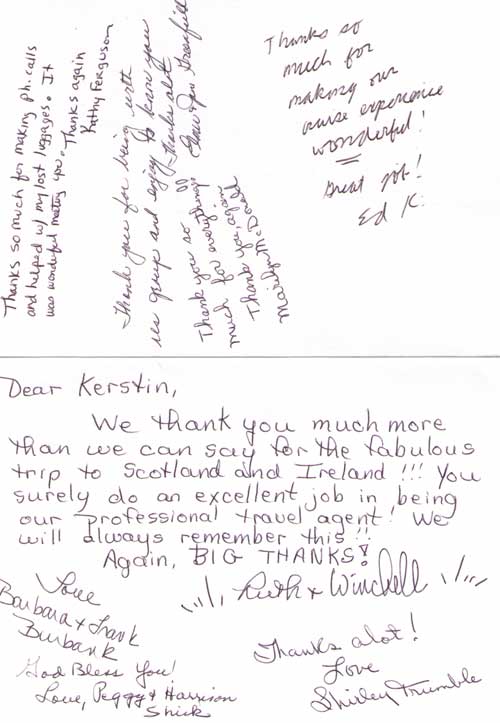 Thanks so much for making ph. calls
and helped w/ my lost luggages. It
was wonderful meeting you.
Thanks again
Kathy Ferguson
Thank you for being with
us group and enjoy to know you
Thanks alot
Thank you so
much for everything
Thank you, again
Marilyn McDonald
Thanks so
much for
making our
cruise experience
wonderful!
Great job!
Ed K.
Dear Kerstin,
We thank you much more
than we can say for the fabulous
trip to Scotland and Ireland!!! You
surely do an excellent job in being
our professional travel agent! We
will always remember this!!
Again, BIG THANKS!
Ruth & Winchell
Love
Barbara & Frank
Burbank
God Bless You!
Love, Peggy & Harrison
Shick
Thanks alot!
Love
Shirley Trumble